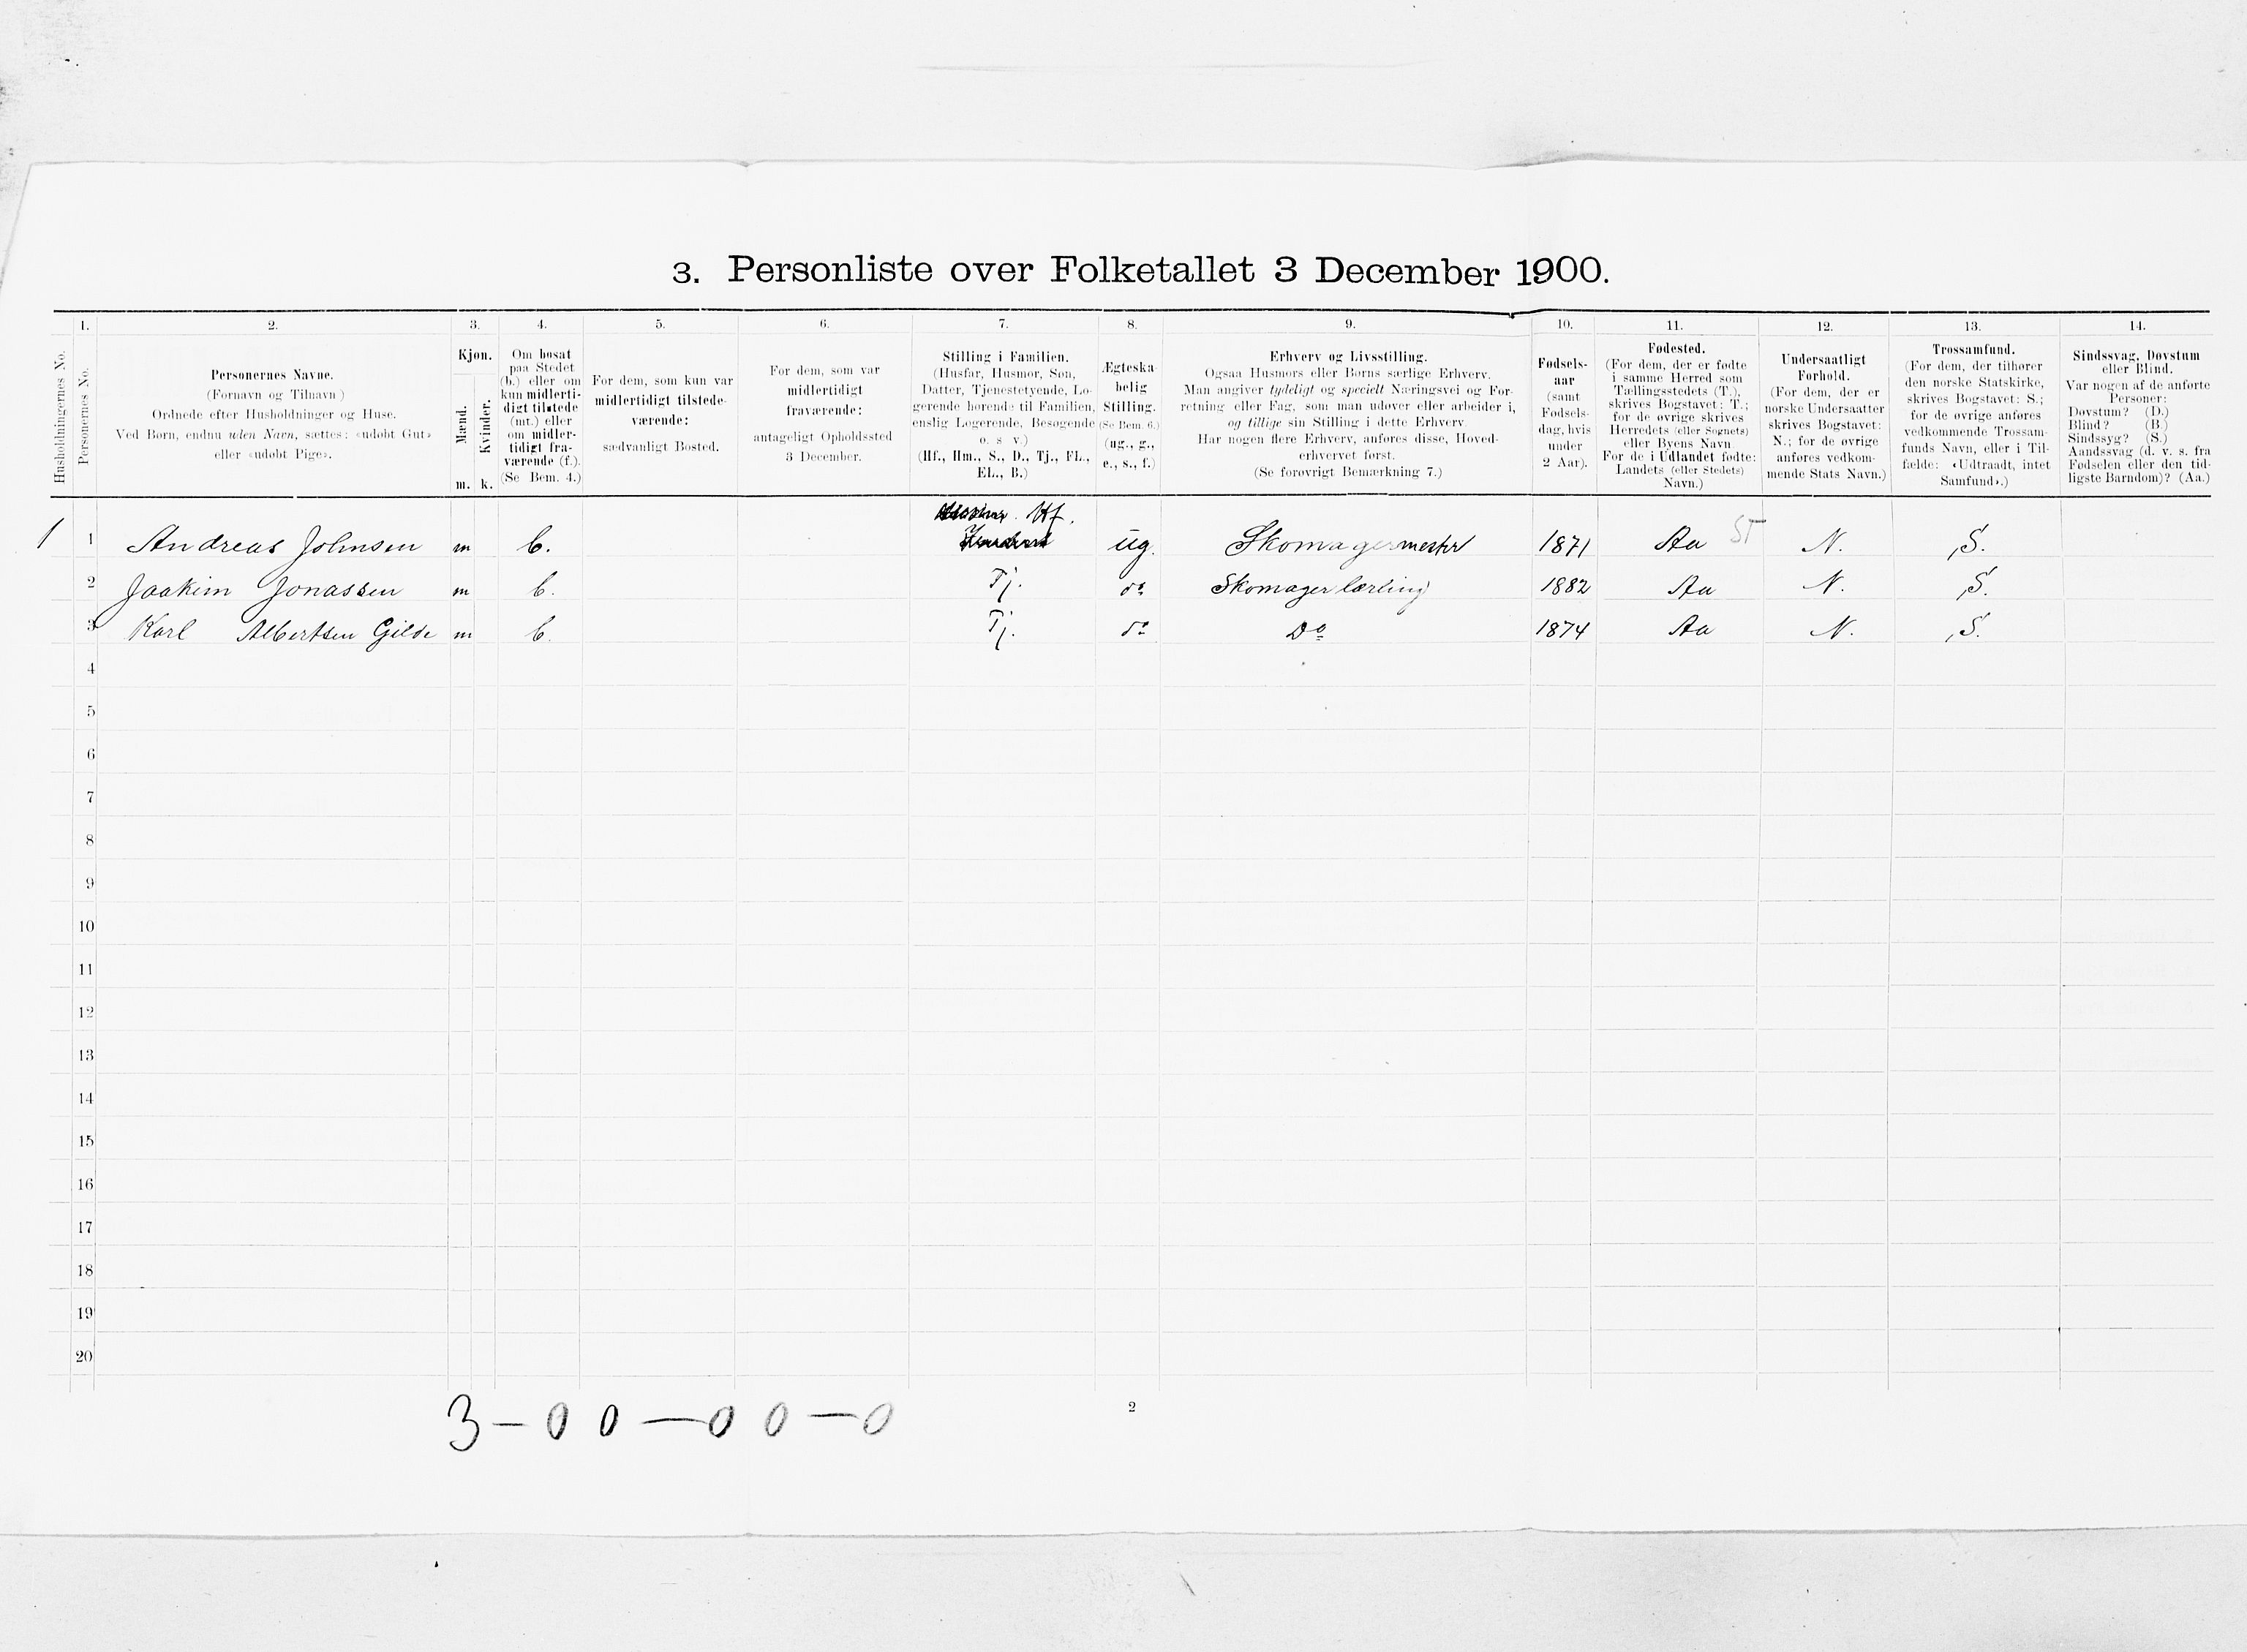 3. Personliste over Folketallet 3 December 1900.
Husholdningernes No.
1.
Personernes No.
2.
Personernes Navne.
(Fornavn og Tilnavn)
Ordnede efter Husholdninger og Huse.
Ved Børn, endnu uden Navn, sættes: «udøbt Gut»
eller «udøbt Pige».
3.
Kjøn.
Mænd.
Kvinder.
m. k.
4.
Om bosat
paa Stedet
(b.) eller om
kun midlerti-
digt tilstede
(mt.) eller
om midler-
tidigt fra-
værende (f.).
(Se Bem. 4.)
5.
For dem, som kun var
midlertidigt tilstede-
værende:
sædvanligt Bosted.
6.
For dem, som var
midlertidigt
fraværende:
antageligt Opholdssted
3 December.
7.
Stilling i Familien.
(Husfar, Husmor, Søn,
Datter, Tjenestetyende, Lo-
gerende hørende til Familien,
enslig Logerende, Besøgende
o. s v.)
(Hf., Hm., S., D., Tj., FL.,
EL., B.)
8.
Ægteska-
belig
Stilling.
(Se Bem. 6.)
(ug., g.,
e., s., f.)
9.
Erhverv og Livsstilling.
Ogsaa Husmors eller Børns særlige Erhverv.
Man angiver tydeligt og specielt Næringsvei og For-
retning eller Fag, som man udøver eller arbeider i,
og tillige sin Stilling i dette Erhverv.
Har nogen flere Erhverv, anføres disse, Hoved-
erhvervet først.
(Se forøvrigt Bemærkning 7.)
10.
Fødsels-
aar
(samt
Fødsels-
dag, hvis
under
2 Aar).
11.
Fødested.
(For dem, der er fødte
i samme Herred som
Tællingsstedets (T.),
skrives Bogstavet: T.;
for de øvrige skrives
Herredets (eller Sognets)
eller Byens Navn.
For de i Udlandet fødte:
Landets (eller Stedets)
Navn.)
12.
Undersaatligt
Forhold.
(For dem, der er
norske Undersaatter
skrives Bogstavet:
N.; for de øvrige
anføres vedkom-
mende Stats Navn.)
13.
Trossamfund.
(For dem, der tilhører
den norske Statskirke,
skrives Bogstavet: S.;
for de øvrige anføres
vedkommende Trossam-
funds Navn, eller i Til-
fælde: «Udtraadt, intet
Samfund».)
14.
Sindssvag, Døvstum
eller Blind.
Var nogen af de anførte
Personer:
Døvstum? (D.)
Blind? (B.)
Sindssyg? (S.)
Aandssvag (d. v. s. fra
Fødselen eller den tid-
ligste Barndom)? (Aa.)
Hf.
1 1 Andreas Johnsen m b. ug. Skomagermester 1871 Aa ST N. S.
2 Joakim Jonassen m b. Tj. do Skomagerlærling 1882 Aa N. S.
3 Karl Albertsen Gilde m b. Tj. do Do 1874 Aa N. S.
4
5
6
7
8
9
10
11
12
13
14
15
16
17
18
19
20
3 — 0 0 — 0 0 — 0
2